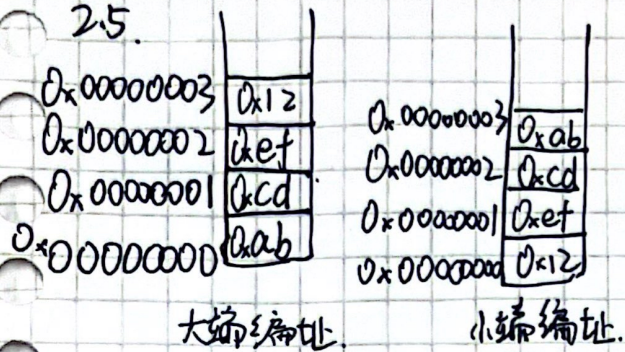 2.5.
0x00000003 0x12
0x00000002 0xef
0x00000001 0xcd
0x00000000 0xab
大端编址.
0x00000003 0xab
0x00000002 0xcd
0x00000001 0xef
0x00000000 0x12
小端编址.